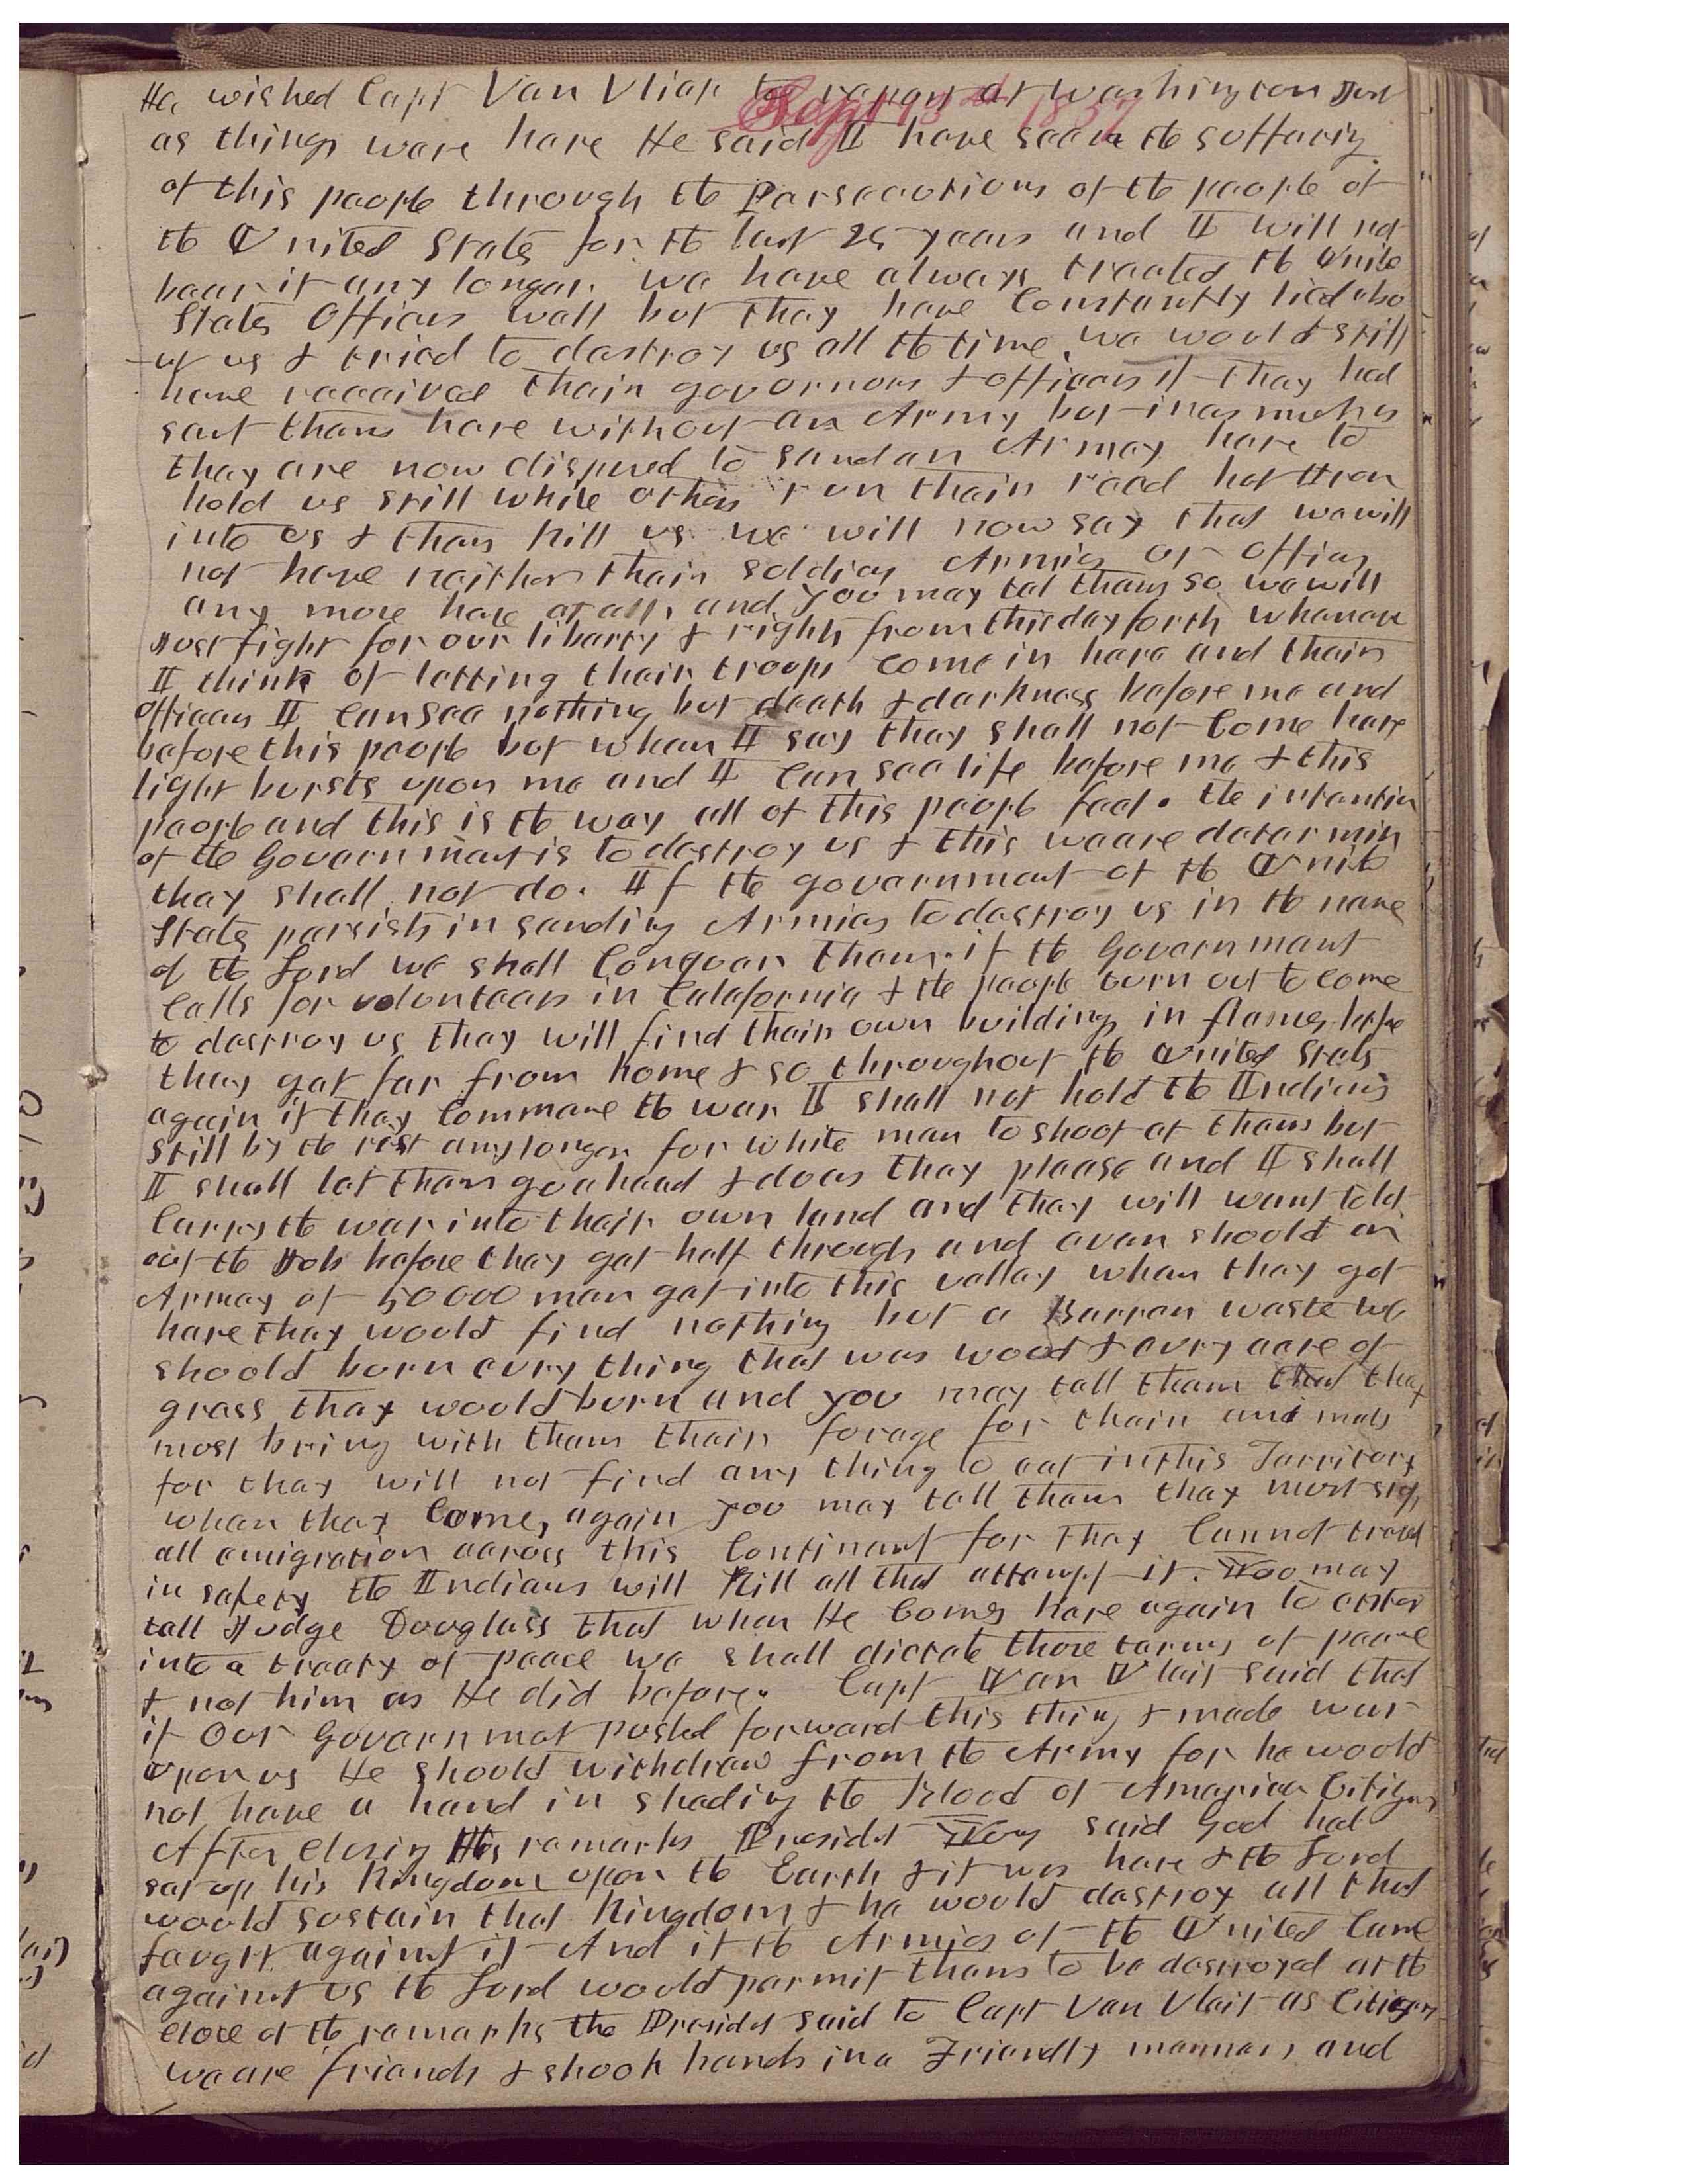 Sept 13th 1857
He wished Capt Van Vliet to report at Washington Just
as things were here He said I have seen the suffering
of this people through the Persecutions of the people of
the United States for the last 25 years and I will not
bear it any longer. we have always treated the Unite
States Officers well but they have Constantly lied abo
ut us & tried to destroy us all the time, we would still
have received their governors & officers if they had
sent them here without an Army but inasmuch as
they are now dispused to send an Armey here to
hold us still while others run their read hot Iron
into us & then kill us we will now say that we will
not have neither their soldiers Armies or Officers
any more here at all, and you may tel them so. we will
Just fight for our liberty & rights from this day forth whenever
I think of letting their troops come in here and their
officers I Can see nothing but death & darkness before me and
before this people but when I say they shall not Come here
light bursts upon me and I Can see life before me & this
people and this is the way all of this people feel. the intention
of the Government is to destroy us & this we are determin
they shall not do. If the government of the Unite
States persists in sending Armies to destroy us in the name
of the Lord we shall Conquer them. if the Government
Calls for volunteers in Calafornia & the people turn out to come
to destroy us they will find their own buildings in flames before
they get far from home & so throughout the United States
again if they Commence the war I shall not hold the Indians
still by the rist any longer for white men to shoot at them but
I shall let them go ahead & do as they please and I shall
Carry the war into their own land and they will want to let
out the Job before they get half through and even should an
Armey of 50000 men get into this valley when they got
here they would find nothing but a Barren waste we
should burn evry thing that was wood & evry acre of
grass that would burn and you may tell them that they
must bring with them their forage for their animals
for they will not find any thing to eat in this Territory
when they Come, again you may tell them they must stop
all emigration across this Continent for they Cannot travel
in safety the Indians will Kill all that attempt it. You may
tell Judge Douglass that when He Comes here again to enter
into a treaty of peace we shall dictate those tarms of peace
& not him as He did before. Capt Van Vleit said that
if Our Governmet pushed forward this thing & made war
upon us He should withdraw from the Army for he would
not have a hand in sheding the blood of American Citizens
After closing His remarks Presidet Young said God had
set up his Kingdom upon the Earth & it was here & the Lord
would sustain that Kingdom & he would destroy all that
faught against it And if the Armies of the United Came
against us the Lord would permit them to be destroyed at the
close of the remarks the Presidet said to Capt Van Vleit as Citizens
we are friends & shook hands in a Friendly manner, and